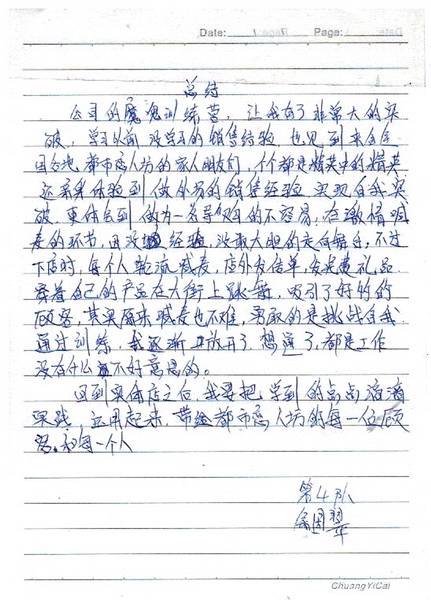 Date: Page:
总结
公司的魔鬼训练营，让我有了非常大的突
破，学习以前没学习的销售经验，也见到来全
国各地都市恋人坊的家人朋友们，个个都是精英中的精英
还亲身体验到做外场的销售经验，实现自我突
破，更体会到做为一名导购的不容易，在激情喊
麦的环节，因没 经验，没敢大胆的走向舞台，不过
下店时，每个人轮流喊麦，店外发传单，发 礼品
穿着自己的产品在大街上跳舞，吸引了好的的
顾客，其实原来喊麦也不难，勇敢的是挑战自我
通过训练，我逐渐 放开了，想通了，都是工作
没有什么 不好意思的。
回到实体店之后，我要把学到的点点滴滴
实践，应用起来，带给都市恋人坊的每一位顾
客，和每一个人
第4队
周翠
ChuangYiCai